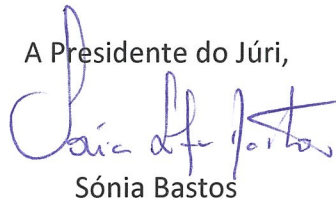 A Presidente do Júri,
Sónia Bastos